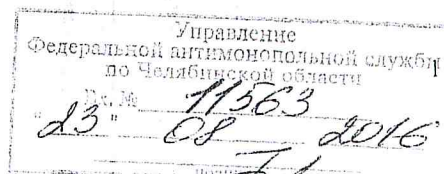 Управление
Федеральной антимонопольной службы
по Челябинской области
Вх. № 11563
"23" 08 2016